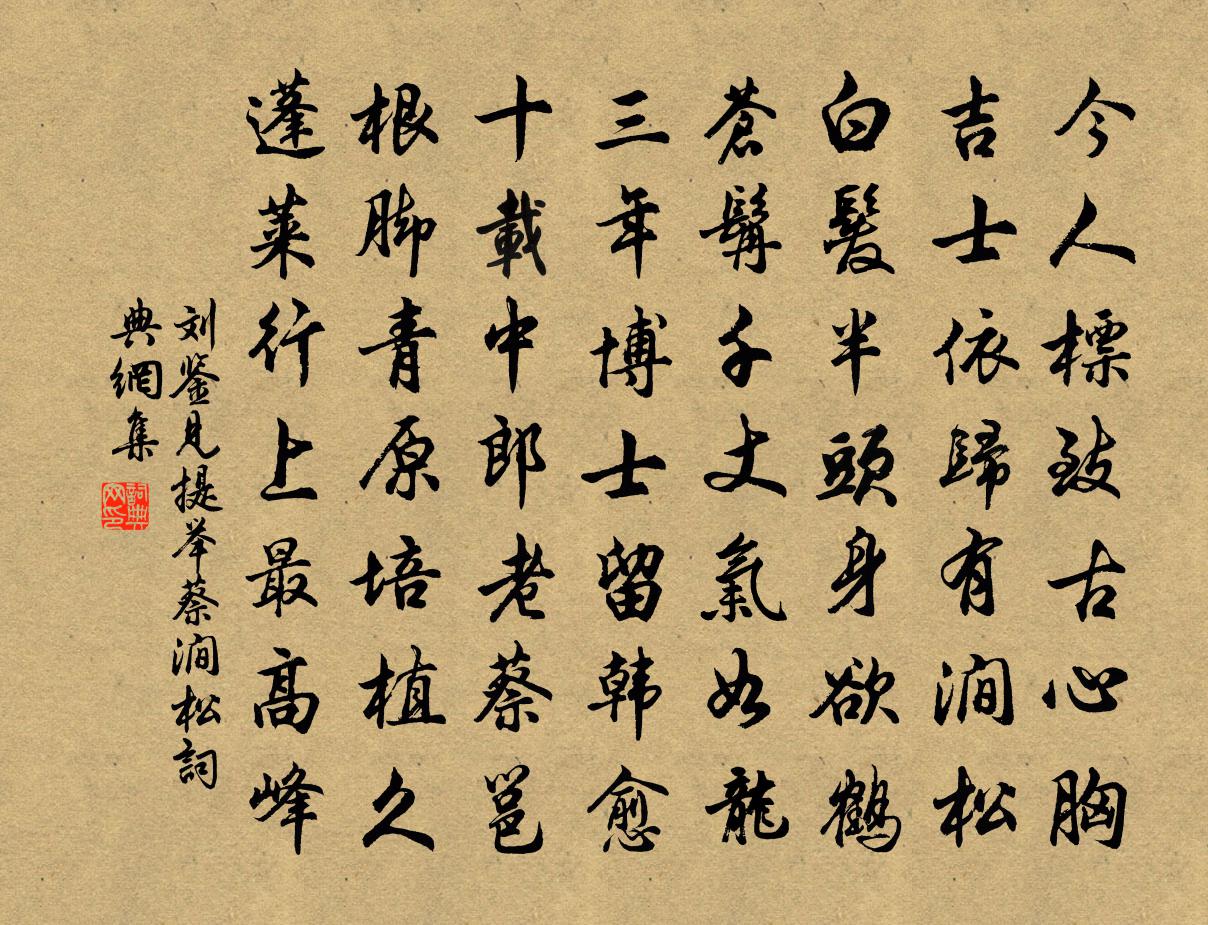 今人標致古心胸
吉士依歸有澗松
白髮半頭身欲鶴
蒼髯千丈氣如龍
三年博士留韩愈
十載中郎老蔡邕
根脚青原培植久
蓬萊行上最高峰
刘鉴见提举蔡澗松詞
典網集
詞典
网印